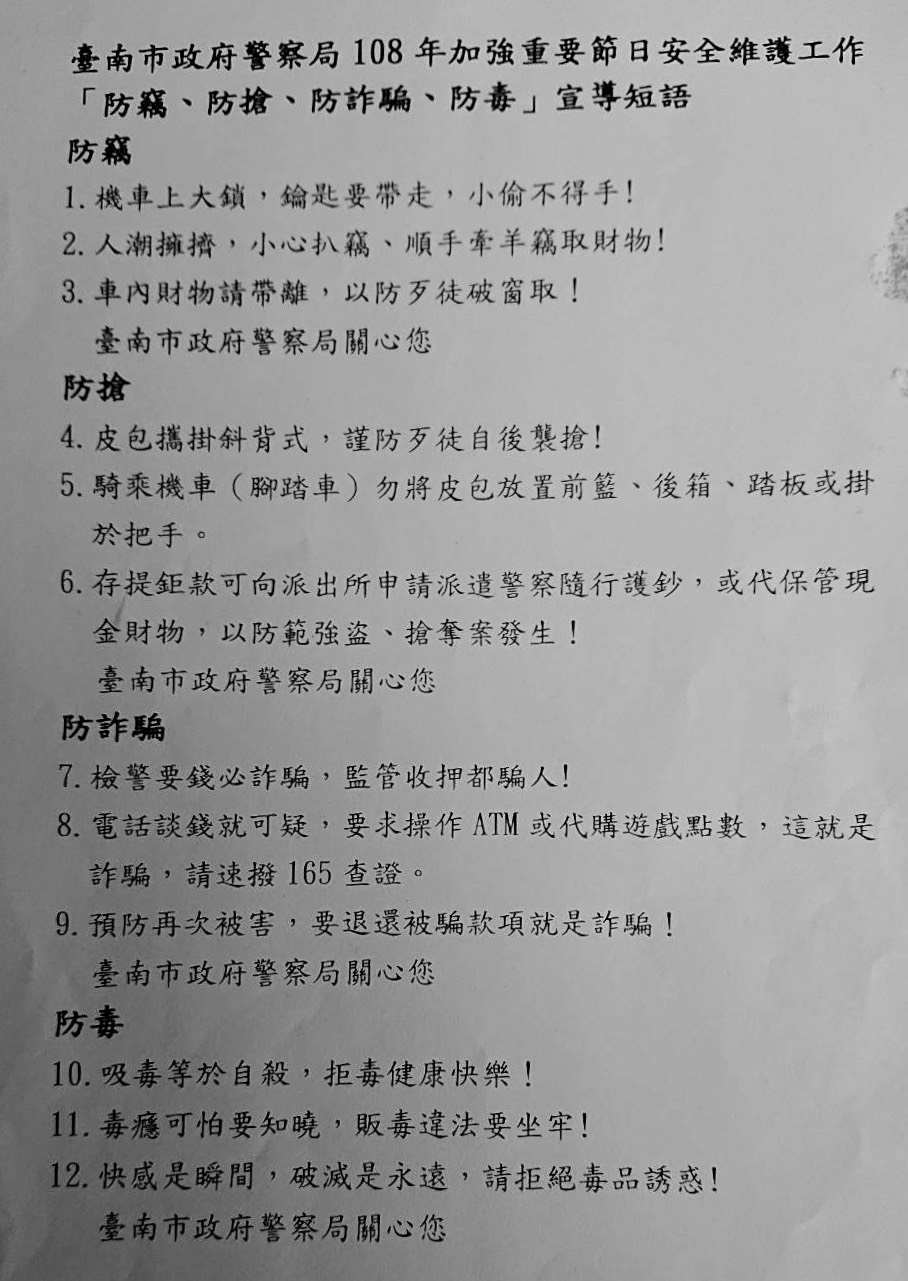 臺南市政府警察局 108 年加強重要節日安全維護工作
「防竊、防搶、防詐騙、防毒」宣導短語
防竊
1. 機車上大鎖，鑰匙要帶走，小偷不得手!
2. 人潮擁擠，小心扒竊、順手牽羊竊取財物!
3. 車內財物請帶離，以防歹徒破窗取！
臺南市政府警察局關心您
防搶
4. 皮包攜掛斜背式，謹防歹徒自後襲搶!
5. 騎乘機車（腳踏車）勿將皮包放置前籃、後箱、踏板或掛
於把手。
6. 存提鉅款可向派出所申請派遣警察隨行護鈔，或代保管現
金財物，以防範強盜、搶奪案發生！
臺南市政府警察局關心您
防詐騙
7. 檢警要錢必詐騙，監管收押都騙人!
8. 電話談錢就可疑，要求操作 ATM 或代購遊戲點數，這就是
詐騙，請速撥 165 查證。
9. 預防再次被害，要退還被騙款項就是詐騙！
臺南市政府警察局關心您
防毒
10. 吸毒等於自殺，拒毒健康快樂！
11. 毒癮可怕要知曉，販毒違法要坐牢!
12. 快感是瞬間，破滅是永遠，請拒絕毒品誘惑!
臺南市政府警察局關心您